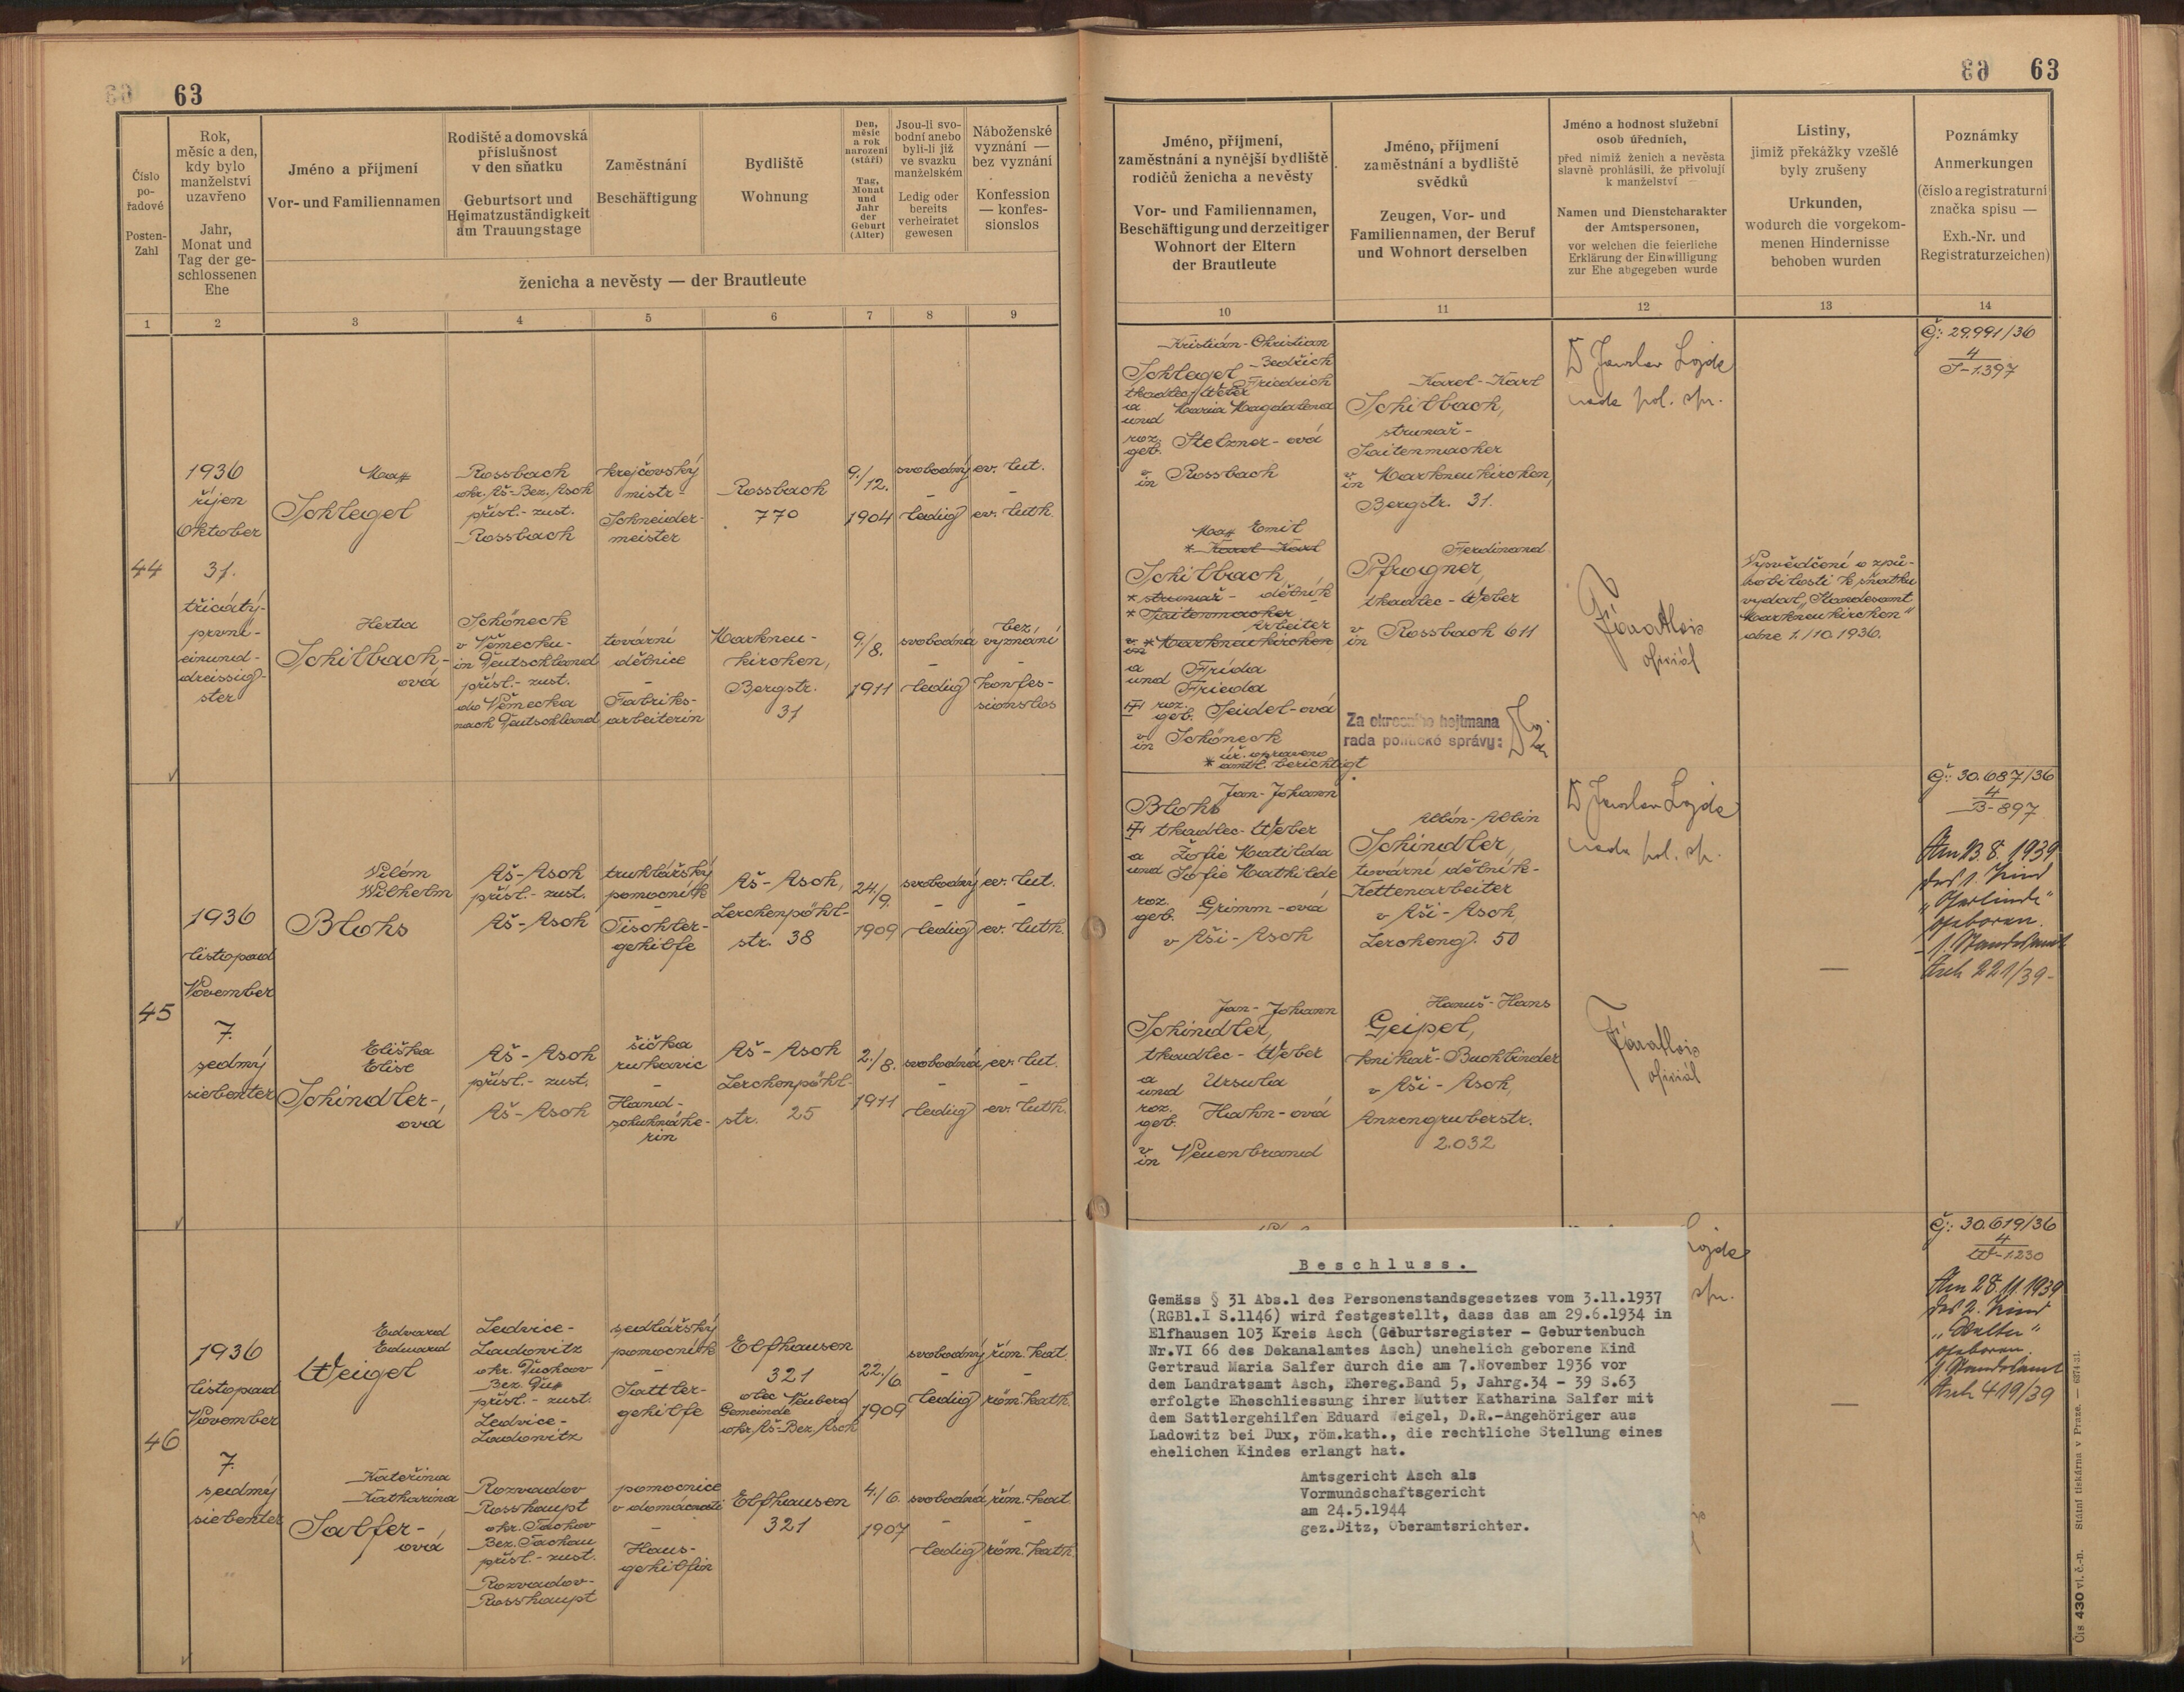 63
63
63
63
Číslo
po-
řadové
Posten-
Zahl
Rok,
měsíc a den,
kdy bylo
manželství
uzavřeno
Jahr,
Monat und
Tag der ge-
schlossenen
Ehe
Jméno a příjmení
Vor- und Familiennamen
Rodiště a domovská
příslušnost
v den sňatku
Geburtsort und
Heimatzuständigkeit
am Trauungstage
Zaměstnání
Beschäftigung
Bydliště
Wohnung
Den,
měsíc
a rok
narození
(stáří)
Tag,
Monat
und
Jahr
der
Geburt
(Alter)
Jsou-li svo-
bodní anebo
byli-li již
ve svazku
manželském
Ledig oder
bereits
verheiratet
gewesen
Náboženské
vyznání —
bez vyznání
Konfession
— konfes-
sionslos
ženicha a nevěsty — der Brautleute
Jméno, příjmení,
zaměstnání a nynější bydliště
rodičů ženicha a nevěsty
Vor- und Familiennamen,
Beschäftigung und derzeitiger
Wohnort der Eltern
der Brautleute
Jméno, příjmení
zaměstnání a bydliště
svědků
Zeugen, Vor- und
Familiennamen, der Beruf
und Wohnort derselben
Jméno a hodnost služební
osob úředních,
před nimiž ženich a nevěsta
slavně prohlásili, že přivolují
k manželství —
Namen und Dienstcharakter
der Amtspersonen,
vor welchen die feierliche
Erklärung der Einwilligung
zur Ehe abgegeben wurde
Listiny,
jimiž překážky vzešlé
byly zrušeny
Urkunden,
wodurch die vorgekom-
menen Hindernisse
behoben wurden
Poznámky
Anmerkungen
(číslo a registraturní
značka spisu —
Exh.-Nr. und
Registraturzeichen)
1 2 3 4 5 6 7 8 9
10 11 12 13 14
44
1936
říjen
Oktober
31.
třicátý-
první-
einund-
dreissig-
ster
Max
Schlegel
Rossbach
okr. Aš-Bez. Asch
přísl.- zust.
Rossbach
krejčovský
mistr -
Schneider-
meister
Rossbach
770
9./
12.
1904
svobodný
-
ledig
ev. lut.
-
ev. luth.
Herta
Schilbach-
ová
Schöneck
v Německu-
in Deutschland
přísl.- zust.
do Německa
nach Deutschland
tovární
dělnice
-
Fabriks-
arbeiterin
Markneu-
kirchen,
Bergstr.
31
9./
8.
1911
svobodná
-
ledig
bez
vyznání
-
konfes-
sionslos
Kristián-Christian
-Bedřich
Schlegel Friedrich
tkadlec-Weber
a
und Maria Magdalena
roz.
geb. Stelzner-ová
v
in Rossbach
Max Emil
* Karel-Karl
Schilbach
* strunař - dělník
* Saitenmacher
Arbeiter
v
in * Markneukirchen
a
und Frída
Frieda
roz.
geb. Seidel-ová
v
in Schöneck
úř. opraveno
* amtl. berichtigt
Karel-Karl
Schilbach,
strunař-
Saitenmacher
v
in Markneukirchen,
Bergstr. 31.
Ferdinand
Pfrogner,
tkadlec-Weber
v
in Rossbach 611
Za okresního hejtmana
rada politické správy:
Dr Jaroslav Lojda
rada pol. spr.
oficiál
Vysvědčení o způ-
sobilosti k sňatku
vydal „Standesamt
Markneukirchen"
dne 1./10. 1936.
Č: 29.991/36
4
S-1.397
45
1936
listopad
November
7.
sedmý
siebenter
Vilém
Wilhelm
Blohs
Aš-Asch
přísl.- zust.
Aš-Asch
truhlářský
pomocník
-
Tischler-
gehilfe
Aš-Asch,
Lerchenpöhl-
str. 38
24./
9.
1909
svobodný
-
ledig
ev. lut.
-
ev. luth.
Eliška
Elise
Schindler-
ová
Aš-Asch
přísl.- zust.
Aš-Asch
šička
rukavic
-
Hand-
schuhnähe-
rin
Aš-Asch
Lerchenpöhl-
str. 25
2./
8.
1911
svobodná
-
ledig
ev. lut.
-
ev. luth.
Jan-Johann
Blohs
tkadlec-Weber
a Žofie Matilda
und Sofie Mathilde
roz.
geb. Grimm-ová
v Aši-Asch
Jan-Johann
Schindler,
tkadlec-Weber
a
und Ursula
roz.
geb. Hahn-ová
v
in Neuenbrand
Albín-Albin
Schindler,
tovární dělník-
Kettenarbeiter
v Aši-Asch,
Lercheng. 50
Hanuš-Hans
Geipel,
knihař-Buchbinder
v Aši-Asch,
Anzengruberstr.
2.032
Dr Jaroslav Lojda
rada pol. spr.
oficiál
—
Č: 30.687/36
4
B-897
Am 23.8.1939
das 1. Kind
„Gerlinde"
geboren.
1. Standesamt
Asch 221/39-
46
1936
listopad
November
7.
sedmý
siebenter
Edvard
Eduard
Weigel
Ledvice-
Ladowitz
okr. Duchcov
Bez. Dux
přísl.- zust.
Ledvice-
Ladowitz
sedlářský
pomocník
-
Sattler-
gehilfe
Elfhausen
321
obec Neuberg
Gemeinde
okr. Aš-Bez. Asch
22./
6.
1909
svobodný
-
ledig
řím. kat.
-
röm. kath.
Kateřina
Katharina
Salfer-
ová
Rozvadov
Rosshaupt
okr. Tachov
Bez. Tachau
přísl.- zust.
Rozvadov-
Rosshaupt
pomocnice
v domácnosti
-
Haus-
gehilfin
Elfhausen
321
4./
6.
1907
svobodná
-
ledig
řím. kat.
-
röm. kath.
Beschluss.
Gemäss § 31 Abs.1 des Personenstandsgesetzes vom 3.11.1937
(RGBl.I S.1146) wird festgestellt, dass das am 29.6.1934 in
Elfhausen 103 Kreis Asch (Geburtsregister - Geburtenbuch
Nr.VI 66 des Dekanalamtes Asch) unehelich geborene Kind
Gertraud Maria Salfer durch die am 7.November 1936 vor
dem Landratsamt Asch, Ehereg.Band 5, Jahrg.34 - 39 S.63
erfolgte Eheschliessung ihrer Mutter Katharina Salfer mit
dem Sattlergehilfen Eduard Weigel, D.R.-Angehöriger aus
Ladowitz bei Dux, röm.kath., die rechtliche Stellung eines
ehelichen Kindes erlangt hat.
Amtsgericht Asch als
Vormundschaftsgericht
am 24.5.1944
gez.Ditz, Oberamtsrichter.
spr.
—
Č: 30.619/36
4
W-1230
Am 28.11.1939
das 2. Kind
„Walter"
geboren.
1. Standesamt
Asch 419/39
Čís 430 vl. č.-n. Státní tiskárna v Praze. — 6374-31.